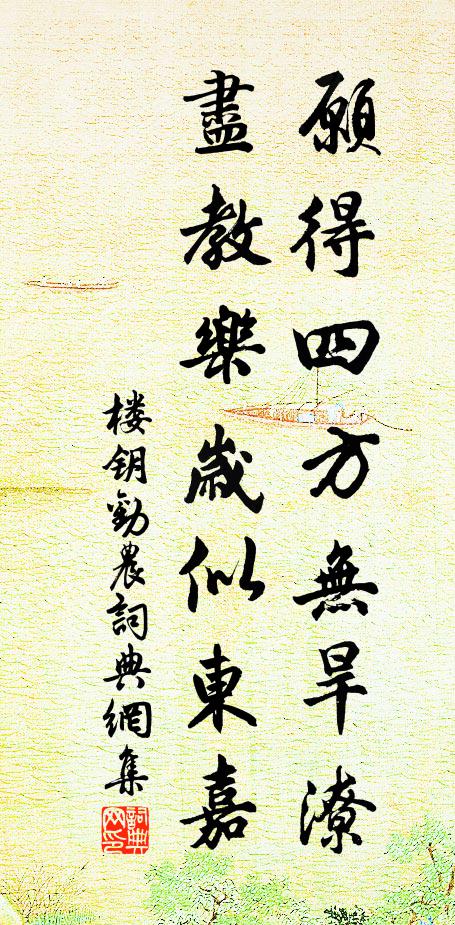 願得四方無旱潦
盡教樂歲似東嘉
楼钥勸農詞典網集
詞典網印